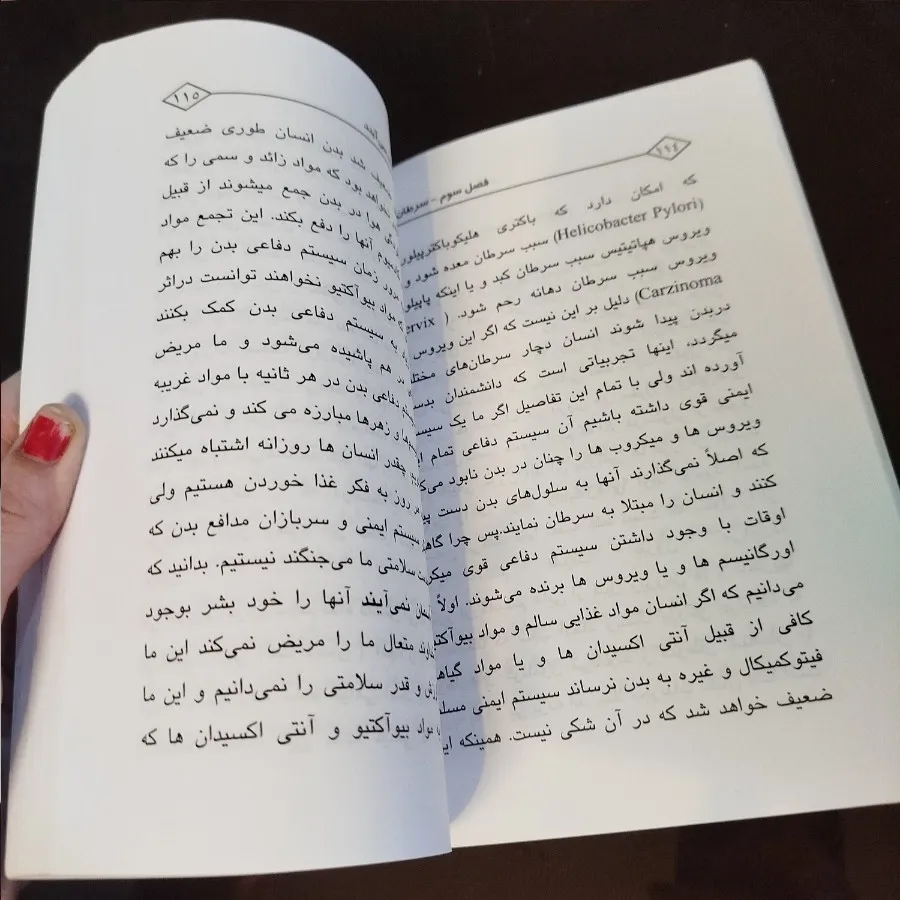 ۱۱۴
فصل سوم - سرطان
که امکان دارد که باکتری هلیکوباکترپیلور
(Helicobacter Pylori) سبب سرطان معده شود و
ویروس هپاتیتیس سبب سرطان کبد و یا اینکه پاپیلو
ویروس سبب سرطان دهانه رحم شود. (
Carzinoma) دلیل بر این نیست که اگر این ویروس
دربدن پیدا شوند انسان دچار سرطان‌های
میگردد، اینها تجربیاتی است که دانشمندان
آورده اند ولی با تمام این تفاصیل اگر ما یک
ایمنی قوی داشته باشیم آن سیستم دفاعی تمام
ویروس ها و میکروب ها را چنان در بدن نابود
که اصلاً نمی‌گذارند آنها به سلول‌های بدن دست
کنند و انسان را مبتلا به سرطان نمایند.پس چرا
اوقات با وجود داشتن سیستم دفاعی قوی
اورگانیسم ها و یا ویروس ها برنده می‌شوند. اولاً
می‌دانیم که اگر انسان مواد غذایی سالم و مواد
کافی از قبیل آنتی اکسیدان ها و یا مواد
فیتوکمیکال و غیره به بدن نرساند سیستم ایمنی
ضعیف خواهد شد که در آن شکی نیست. همینکه
۱۱۵
شد بدن انسان طوری ضعیف
بود که مواد زائد و سمی را که
هوا در بدن جمع میشوند از قبیل
آنها را دفع بکند. این تجمع مواد
زمان سیستم دفاعی بدن را بهم
مواد بیوآکتیو نخواهند توانست دراثر
به سیستم دفاعی بدن کمک بکنند
در هم پاشیده می‌شود و ما مریض
دفاعی بدن در هر ثانیه با مواد غریبه
و زهرها مبارزه می کند و نمی‌گذارد
چقدر انسان ها روزانه اشتباه میکنند
روز به فکر غذا خوردن هستیم ولی
سیستم ایمنی و سربازان مدافع بدن که
سلامتی ما می‌جنگند نیستیم. بدانید که
نمی‌آیند آنها را خود بشر بوجود
متعال ما را مریض نمی‌کند این ما
و قدر سلامتی را نمی‌دانیم و این ما
مواد بیوآکتیو و آنتی اکسیدان ها که